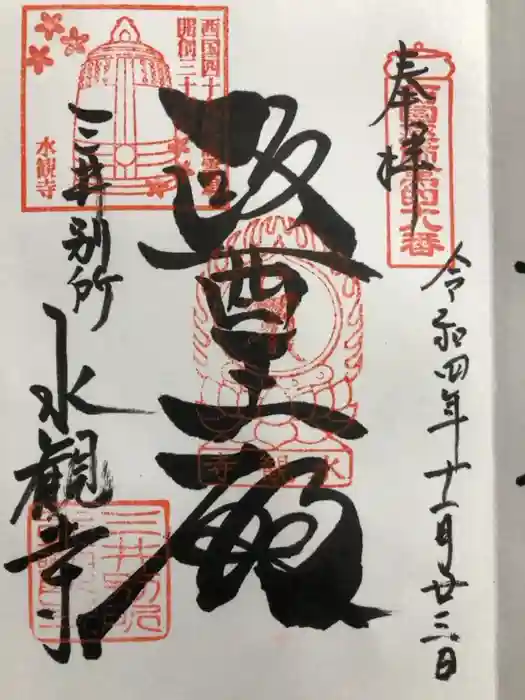 奉拝
令和四年十一月廿三日
醫王殿
三井別所
水観寺
西国四十
開創三十
水観寺
水観寺
三井別所